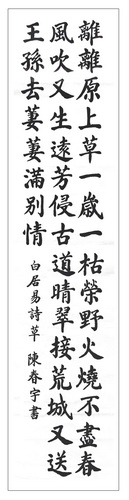 離離原上草一歲一枯榮野火燒不盡春
風吹又生遠芳侵古道晴翠接荒城又送
王孫去萋萋滿別情
白居易詩草 陳春宇書